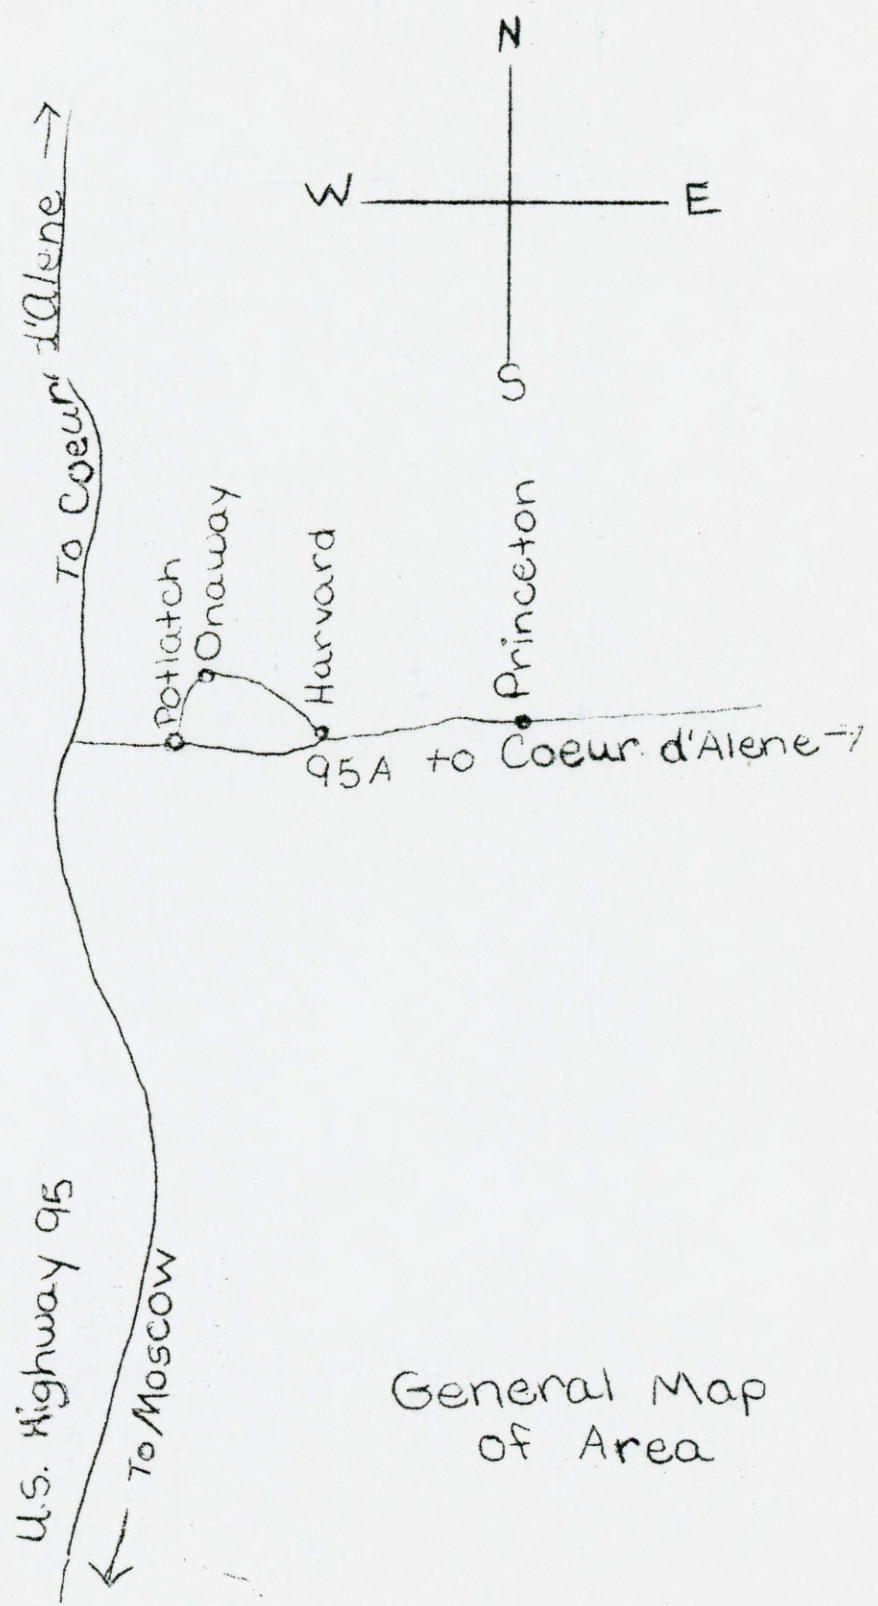 N
W E
S
To Coeur d'Alene
Potlatch
Onaway
Harvard
Princeton
95A to Coeur d'Alene
U.S. Highway 95
To Moscow
General Map
of Area